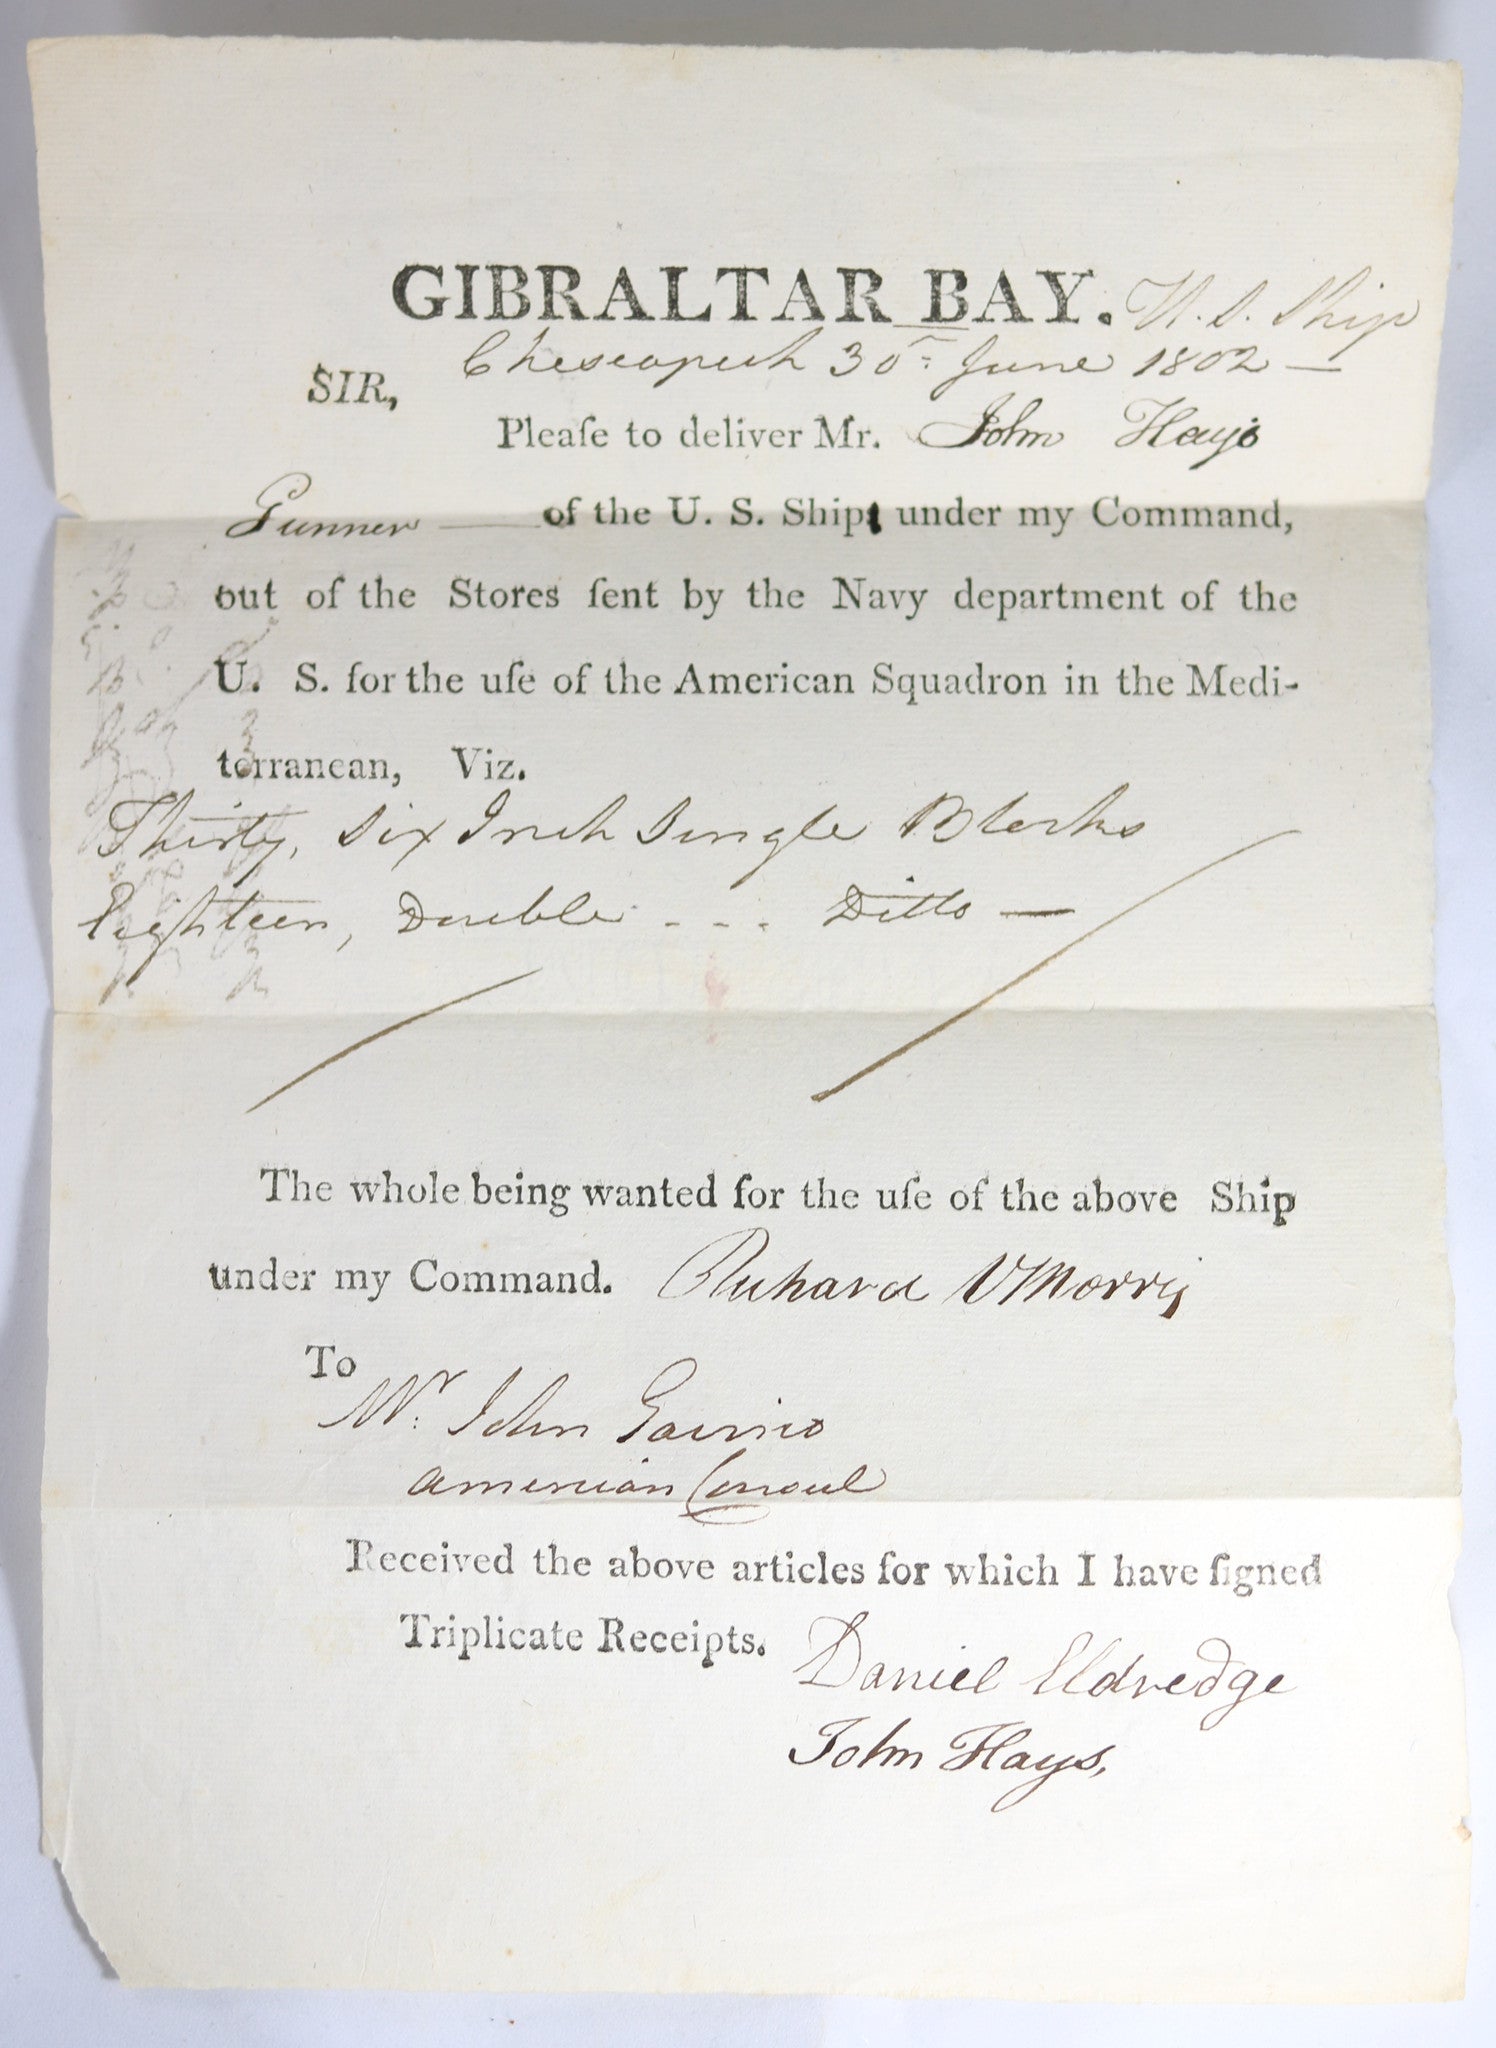 GIBRALTAR BAY. U. S. Ship
Cheseapeek 30th June 1802 —
SIR,
Pleaſe to deliver Mr. John Hays
Gunner — of the U. S. Ship under my Command,
out of the Stores ſent by the Navy department of the
U. S. for the uſe of the American Squadron in the Medi-
terranean, Viz.
Thirty, Six Inch Single Blocks
Eighteen, Double - - - Ditto —
The whole being wanted for the uſe of the above Ship
under my Command. Richard V Morris
To
Mr. John Gavino
American Consul
Received the above articles for which I have ſigned
Triplicate Receipts. Daniel Eldredge
John Hays,